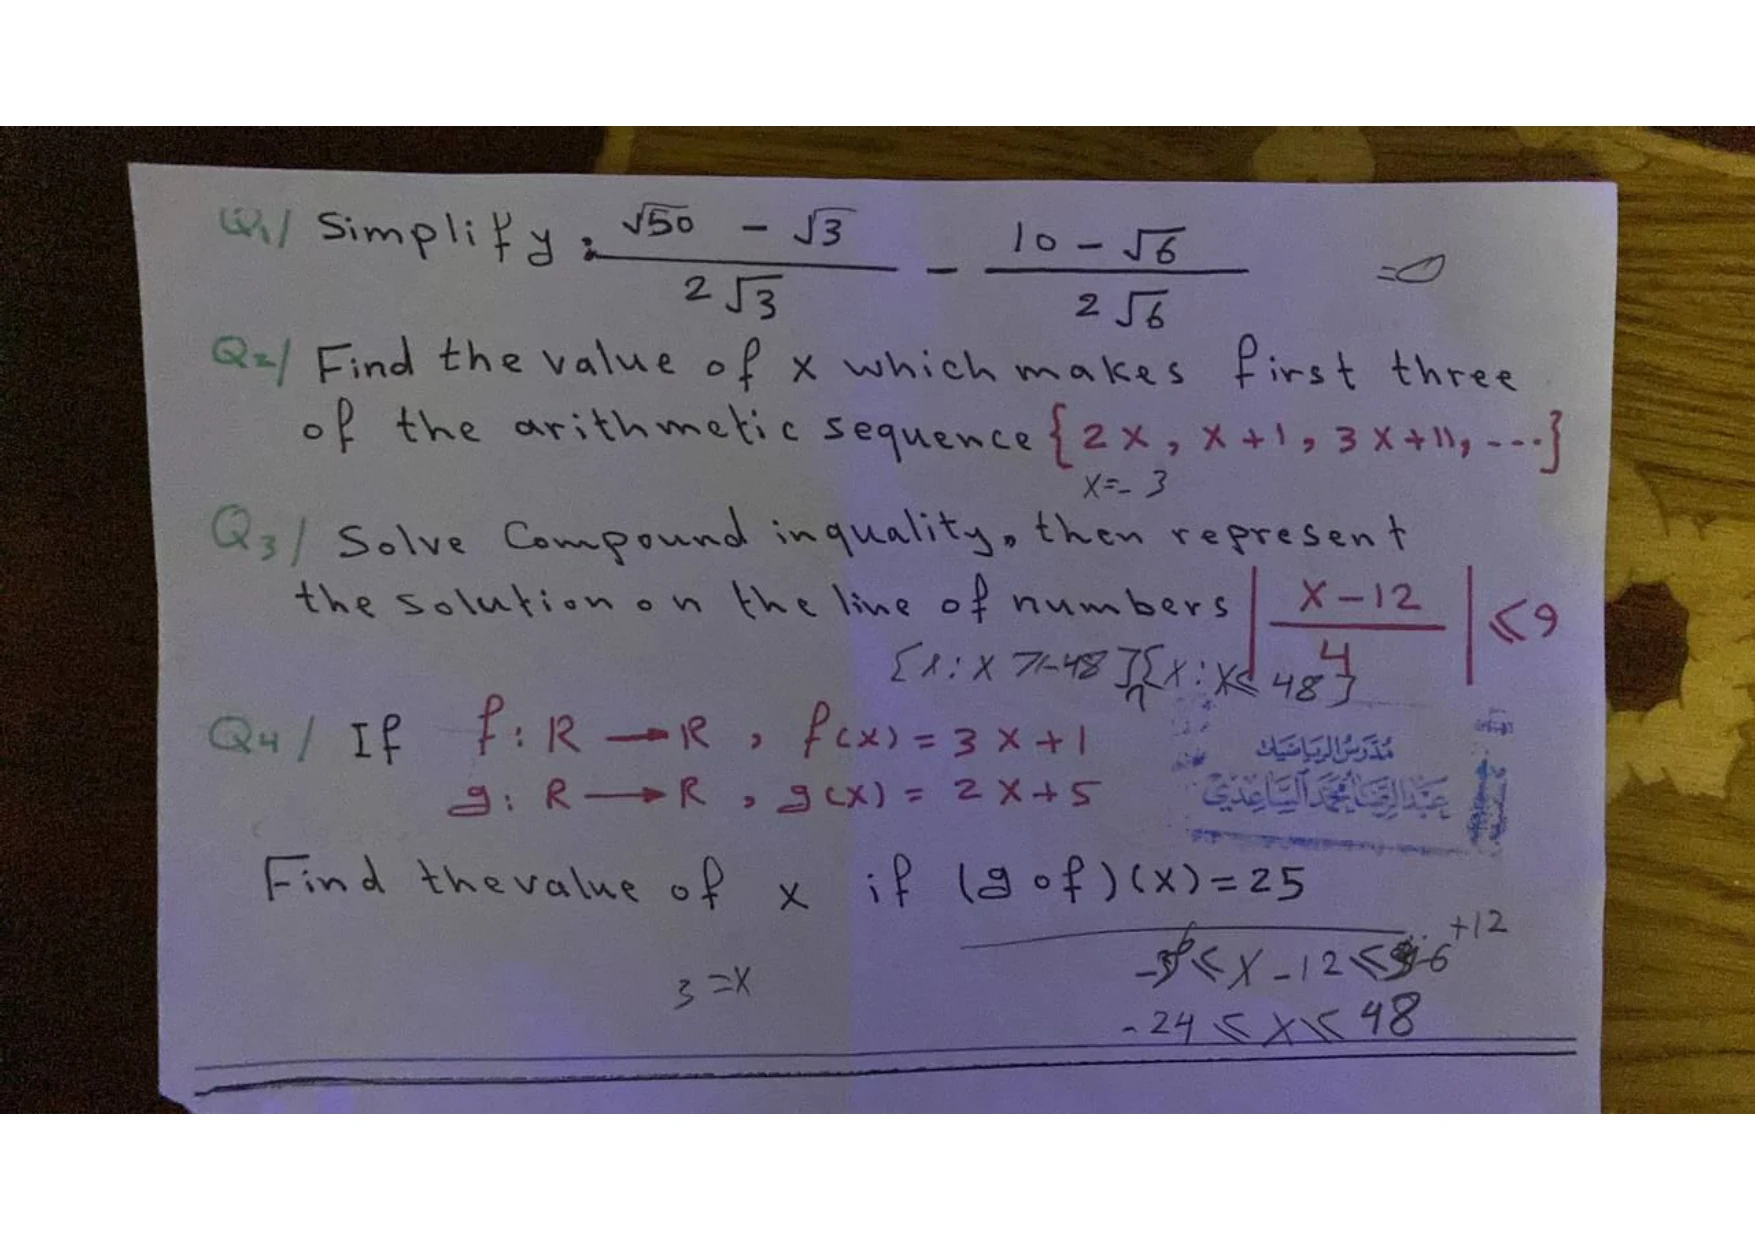 Q1/ Simplify: √50 - √3 / 2√3 - 10 - √6 / 2√6 =0
Q2/ Find the value of x which makes first three
of the arithmetic sequence {2x, x+1, 3x+11, ....}
x=-3
Q3/ Solve Compound inquality, then represent
the solution on the line of numbers |x-12 / 4| ≤9
{x: x ≥-48}∩{x: x≤ 48}
Q4/ If f: R → R, f(x) = 3x+1
g: R → R, g(x) = 2x+5
مدرس الرياضيات
عبد الرضا محمد الساعدي
Find the value of x if (gof)(x)=25
+12
≤ x-12 ≤
3 =x
-24 ≤ x ≤ 48